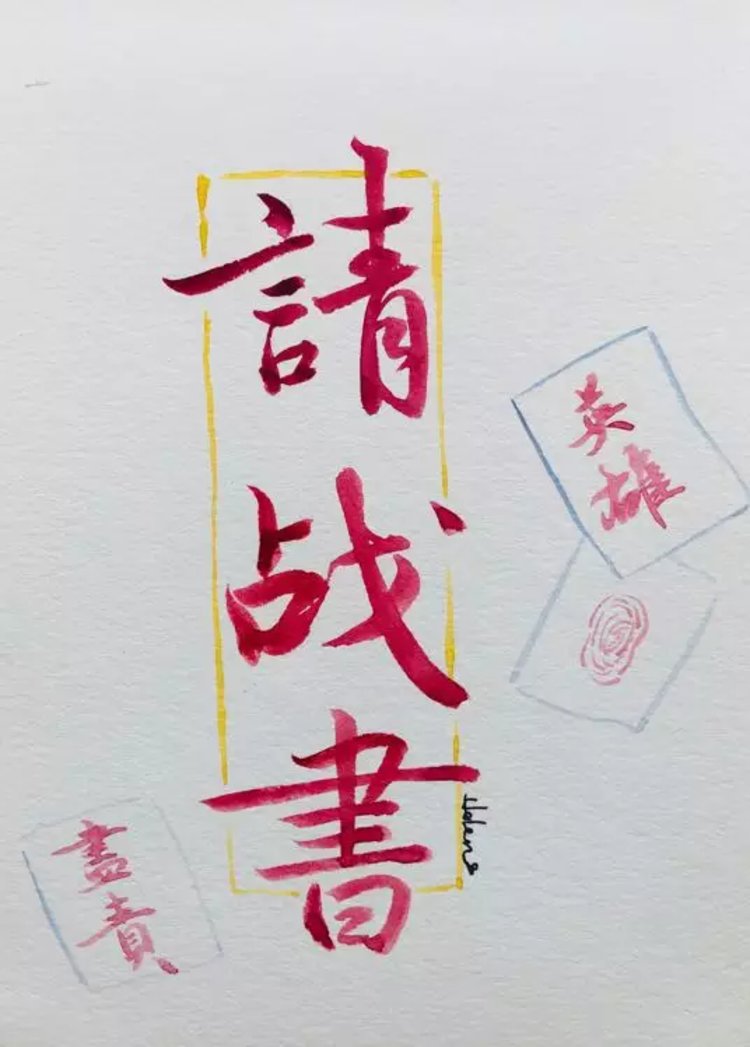 請战書
英雄
盡責
Helen